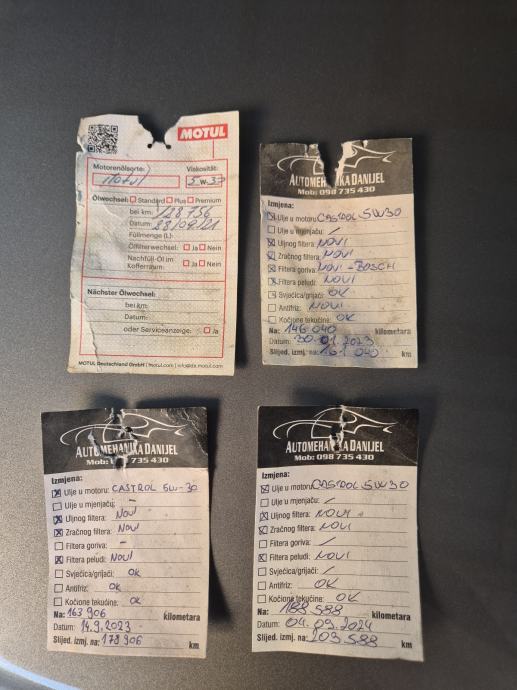 MOTUL
Motorenölsorte: Viskosität:
Motul 5W-30
Ölwechsel: Standard Plus Premium
bei km: 128 736
Datum: 28/09/21
Füllmenge (L):
Ölfilterwechsel: Ja Nein
Nachfüll-Öl im Kofferraum: Ja Nein
Nächster Ölwechsel:
bei km:
Datum:
oder Serviceanzeige: Ja
MOTUL Deutschland GmbH | motul.com | info@de.motul.com
AUTOMEHANIKA DANIJEL
Mob: 098 735 430
Izmjena:
Ulje u motoru: CASTROL 5W30
Ulje u mjenjaču: /
Uljnog filtera: NOVI
Zračnog filtera: NOVI
Filtera goriva: NOVI - BOSCH
Filtera peludi: NOVI
Svjećica/grijači: OK
Antifriz: NOVI
Kočione tekućine: OK
Na: 146 040 kilometara
Datum: 30.01.2023
Slijed. izmj. na: 161 040 km
AUTOMEHANIKA DANIJEL
Mob: 098 735 430
Izmjena:
Ulje u motoru: CASTROL 5W-30
Ulje u mjenjaču: -
Uljnog filtera: NOVI
Zračnog filtera: NOVI
Filtera goriva: -
Filtera peludi: NOVI
Svjećica/grijači: OK
Antifriz: OK
Kočione tekućine: OK
Na: 163 906 kilometara
Datum: 14.9.2023
Slijed. izmj. na: 178 906 km
AUTOMEHANIKA DANIJEL
Mob: 098 735 430
Izmjena:
Ulje u motoru: CASTROL 5W30
Ulje u mjenjaču: /
Uljnog filtera: NOVI
Zračnog filtera: NOVI
Filtera goriva: /
Filtera peludi: NOVI
Svjećica/grijači: /
Antifriz: OK
Kočione tekućine: OK
Na: 188 588 kilometara
Datum: 04.09.2024
Slijed. izmj. na: 203 588 km